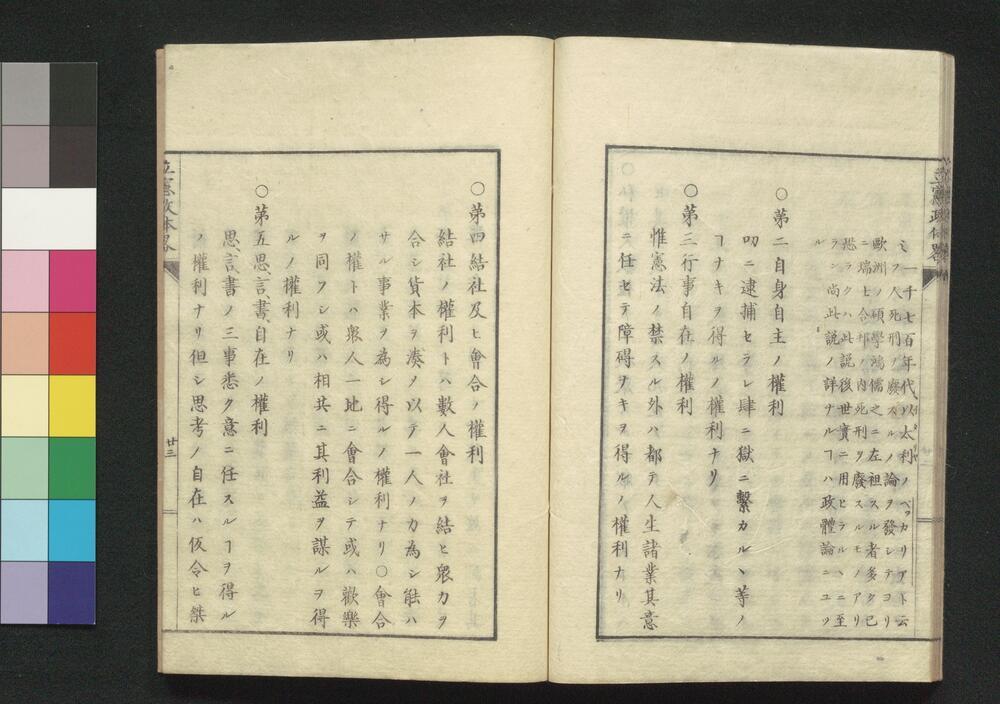 ミ一千七百年代以太利ノベッカリアト云
フ人死刑ノ廢スルノ論ヲ發シテヨリ
歐洲ノ碩學鴻儒之ニ左袒スル者多ク已
ニ瑞七合邦ノ内死刑ヲ廢スルモノアリ
恐ラクハ此説後世實ニ用ヒラルヽニ至
ラン尚此説ノ詳ナルヿハ政體論ニユヅ
ル
○第二自身自主ノ權利
叨ニ逮捕セラレ肆ニ獄ニ繋カルヽ等ノ
ヿナキヲ得ルノ權利ナリ
○第三行事自在ノ權利
惟憲法ノ禁スル外ハ都テ人生諸業其意
ニ任セテ障碍ナキヲ得ルノ權利ナリ
立憲政体畧
○第四結社及ヒ會合ノ權利
結社ノ權利トハ數人會社ヲ結ヒ衆力ヲ
合シ貨本ヲ湊メ以テ一人ノ力為シ能ハ
サル事業ヲ為シ得ルノ權利ナリ○會合
ノ權トハ衆人一地ニ會合シテ或ハ歡樂
ヲ同フシ或ハ相共ニ其利益ヲ謀ルヲ得
ルノ權利ナリ
○第五思、言、書、自在ノ權利
思、言、書ノ三事悉ク意ニ任スルヿヲ得ル
ノ權利ナリ但シ思考ノ自在ハ仮令ヒ桀
立憲政体畧
廿三